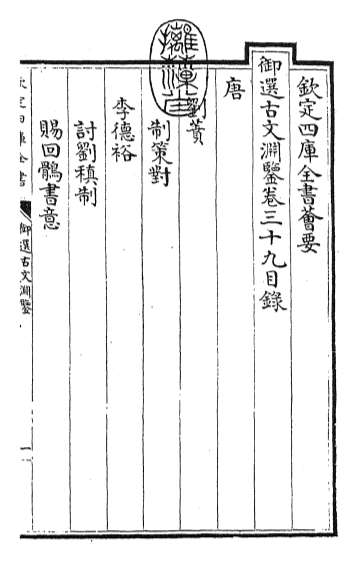 欽定四庫全書薈要
御選古文淵鑒卷三十九目錄
唐
劉蕡
制策對
李德裕
討劉稹制
賜回鶻書意
欽定四庫全書
御選古文淵鑒
一